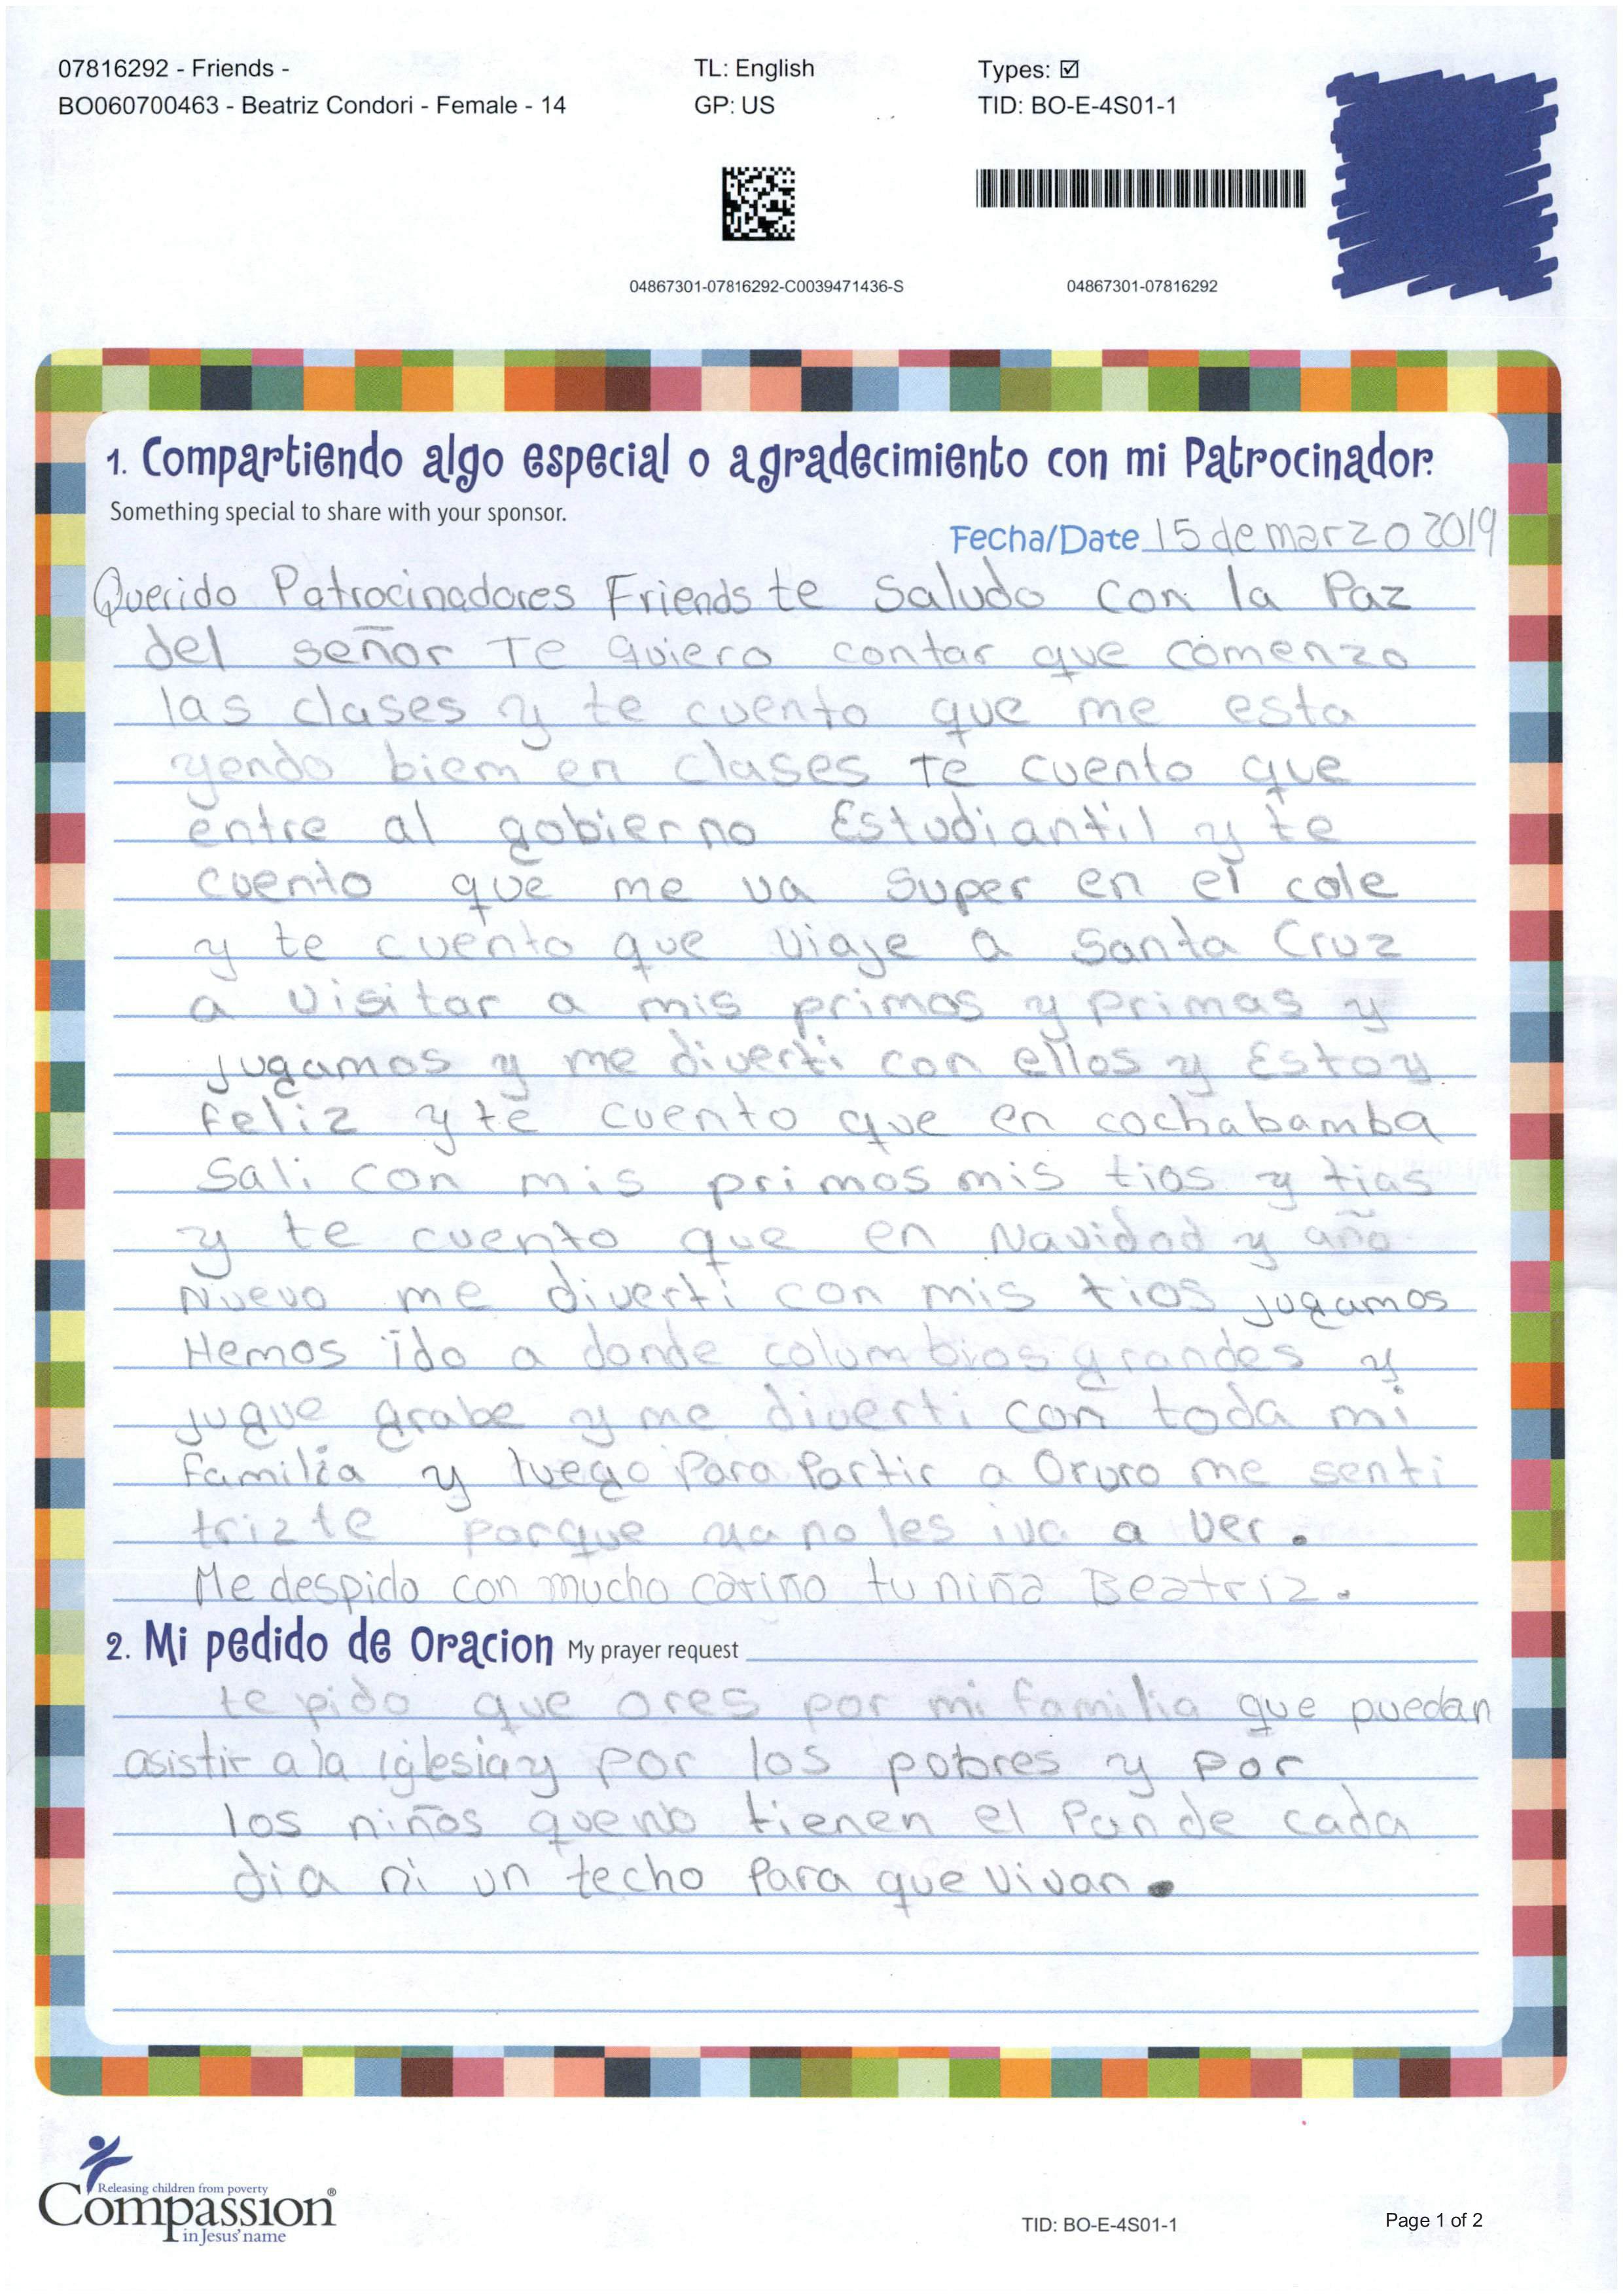 07816292 - Friends -
BO060700463 - Beatriz Condori - Female - 14
TL: English
GP: US
Types: ☑
TID: BO-E-4S01-1
04867301-07816292-C0039471436-S
04867301-07816292
1. Compartiendo algo especial o agradecimiento con mi Patrocinador.
Something special to share with your sponsor.
Fecha/Date 15 de marzo 2019
Querido Patrocinadores Friends te Saludo con la Paz
del señor Te quiero contar que comenzo
las clases y te cuento que me esta
yendo biem en clases Te cuento que
entre al gobierno Estudiantil y te
cuento que me va super en el cole
y te cuento que viaje a Santa Cruz
a visitar a mis primos y primas y
jugamos y me diverti con ellos y Estoy
feliz y te cuento que en cochabamba
Sali con mis primos mis tios y tias
y te cuento que en Navidad y año
Nuevo me diverti con mis tios jugamos
Hemos ido a donde columbios grandes y
jugue grabe y me diverti con toda mi
familia y luego Para Partir a Oruro me senti
trizte porque ya no les iva a ver.
Me despido con mucho cariño tu niña Beatriz.
2. Mi pedido de Oracion My prayer request
te pido que ores por mi familia que puedan
asistir a la iglesia y por los pobres y por
los niños que no tienen el Pan de cada
dia ni un techo Para que vivan.
Releasing children from poverty
Compassion®
in Jesus' name
TID: BO-E-4S01-1
Page 1 of 2